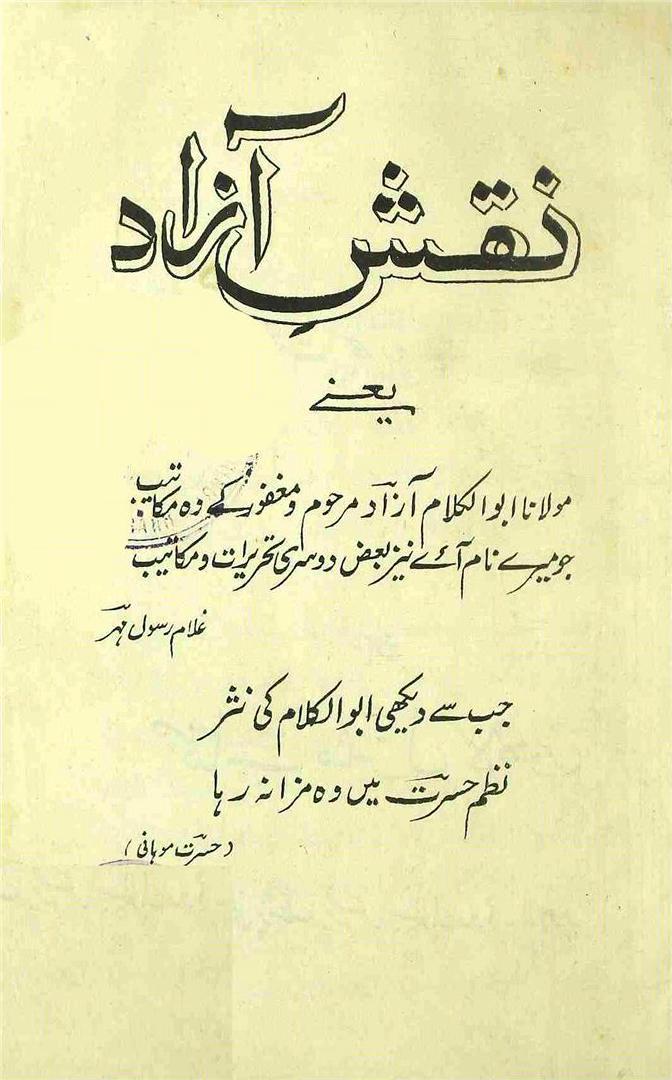 نقشِ آزاد
یعنے
مولانا ابوالکلام آزاد مرحوم و مغفور کے وہ مکاتیب
جو میرے نام آئے نیز بعض دوسری تحریرات و مکاتیب
غلام رسول مہر
جب سے دیکھی ابوالکلام کی نثر
نظم حسرت میں وہ مزا نہ رہا
(حسرت موہانی)